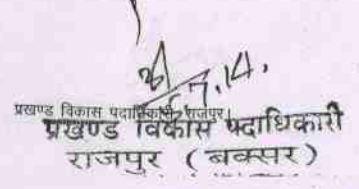 7.14.
प्रखण्ड विकास पदाधिकारी, राजपुर।
प्रखण्ड विकास पदाधिकारी
राजपुर (बक्सर)